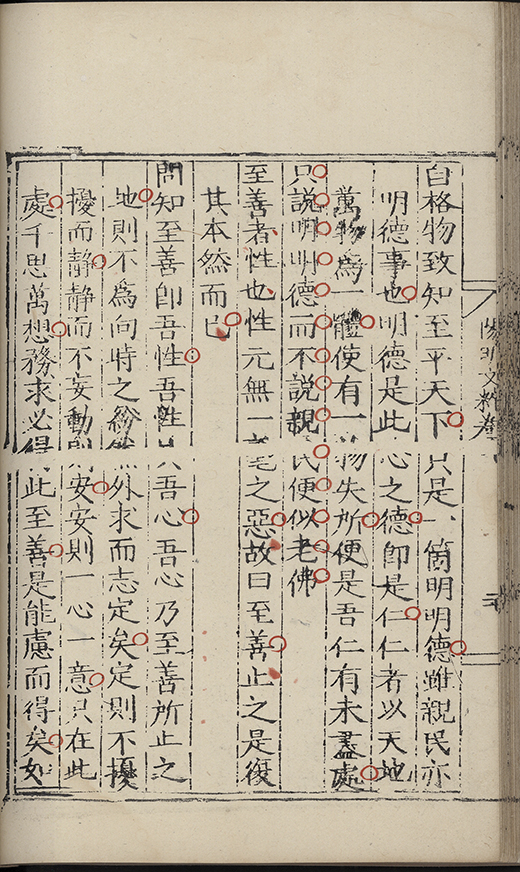 陽明文粹卷
自格物致知至平天下只是一箇明明德雖親民亦
明德事也明德是此心之德即是仁仁者以天地
萬物爲體使有一物失所便是吾仁有未盡處
只說明明德而不說親民便似老佛
至善者性也性元無一毫之惡故曰至善止之是復
其本然而已
問知至善即吾性吾性具吾心吾心乃至善所止之
地則不爲向時之紛然外求而志定矣定則不擾
擾而静静而不妄動則安安則一心一意只在此
處千思萬想務求必得此至善是能慮而得矣如